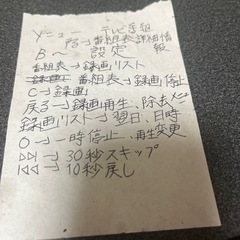 メニュー テレビ番組
戻る→番組表詳細情報
B～＝設定
番組表→録画リスト
番組表→録画停止
C→録画
戻る→録画再生、除去メニュー
録画リスト→翌日、日時
O→一時停止、再生変更
▷▷|→30秒スキップ
|◁◁→10秒戻し